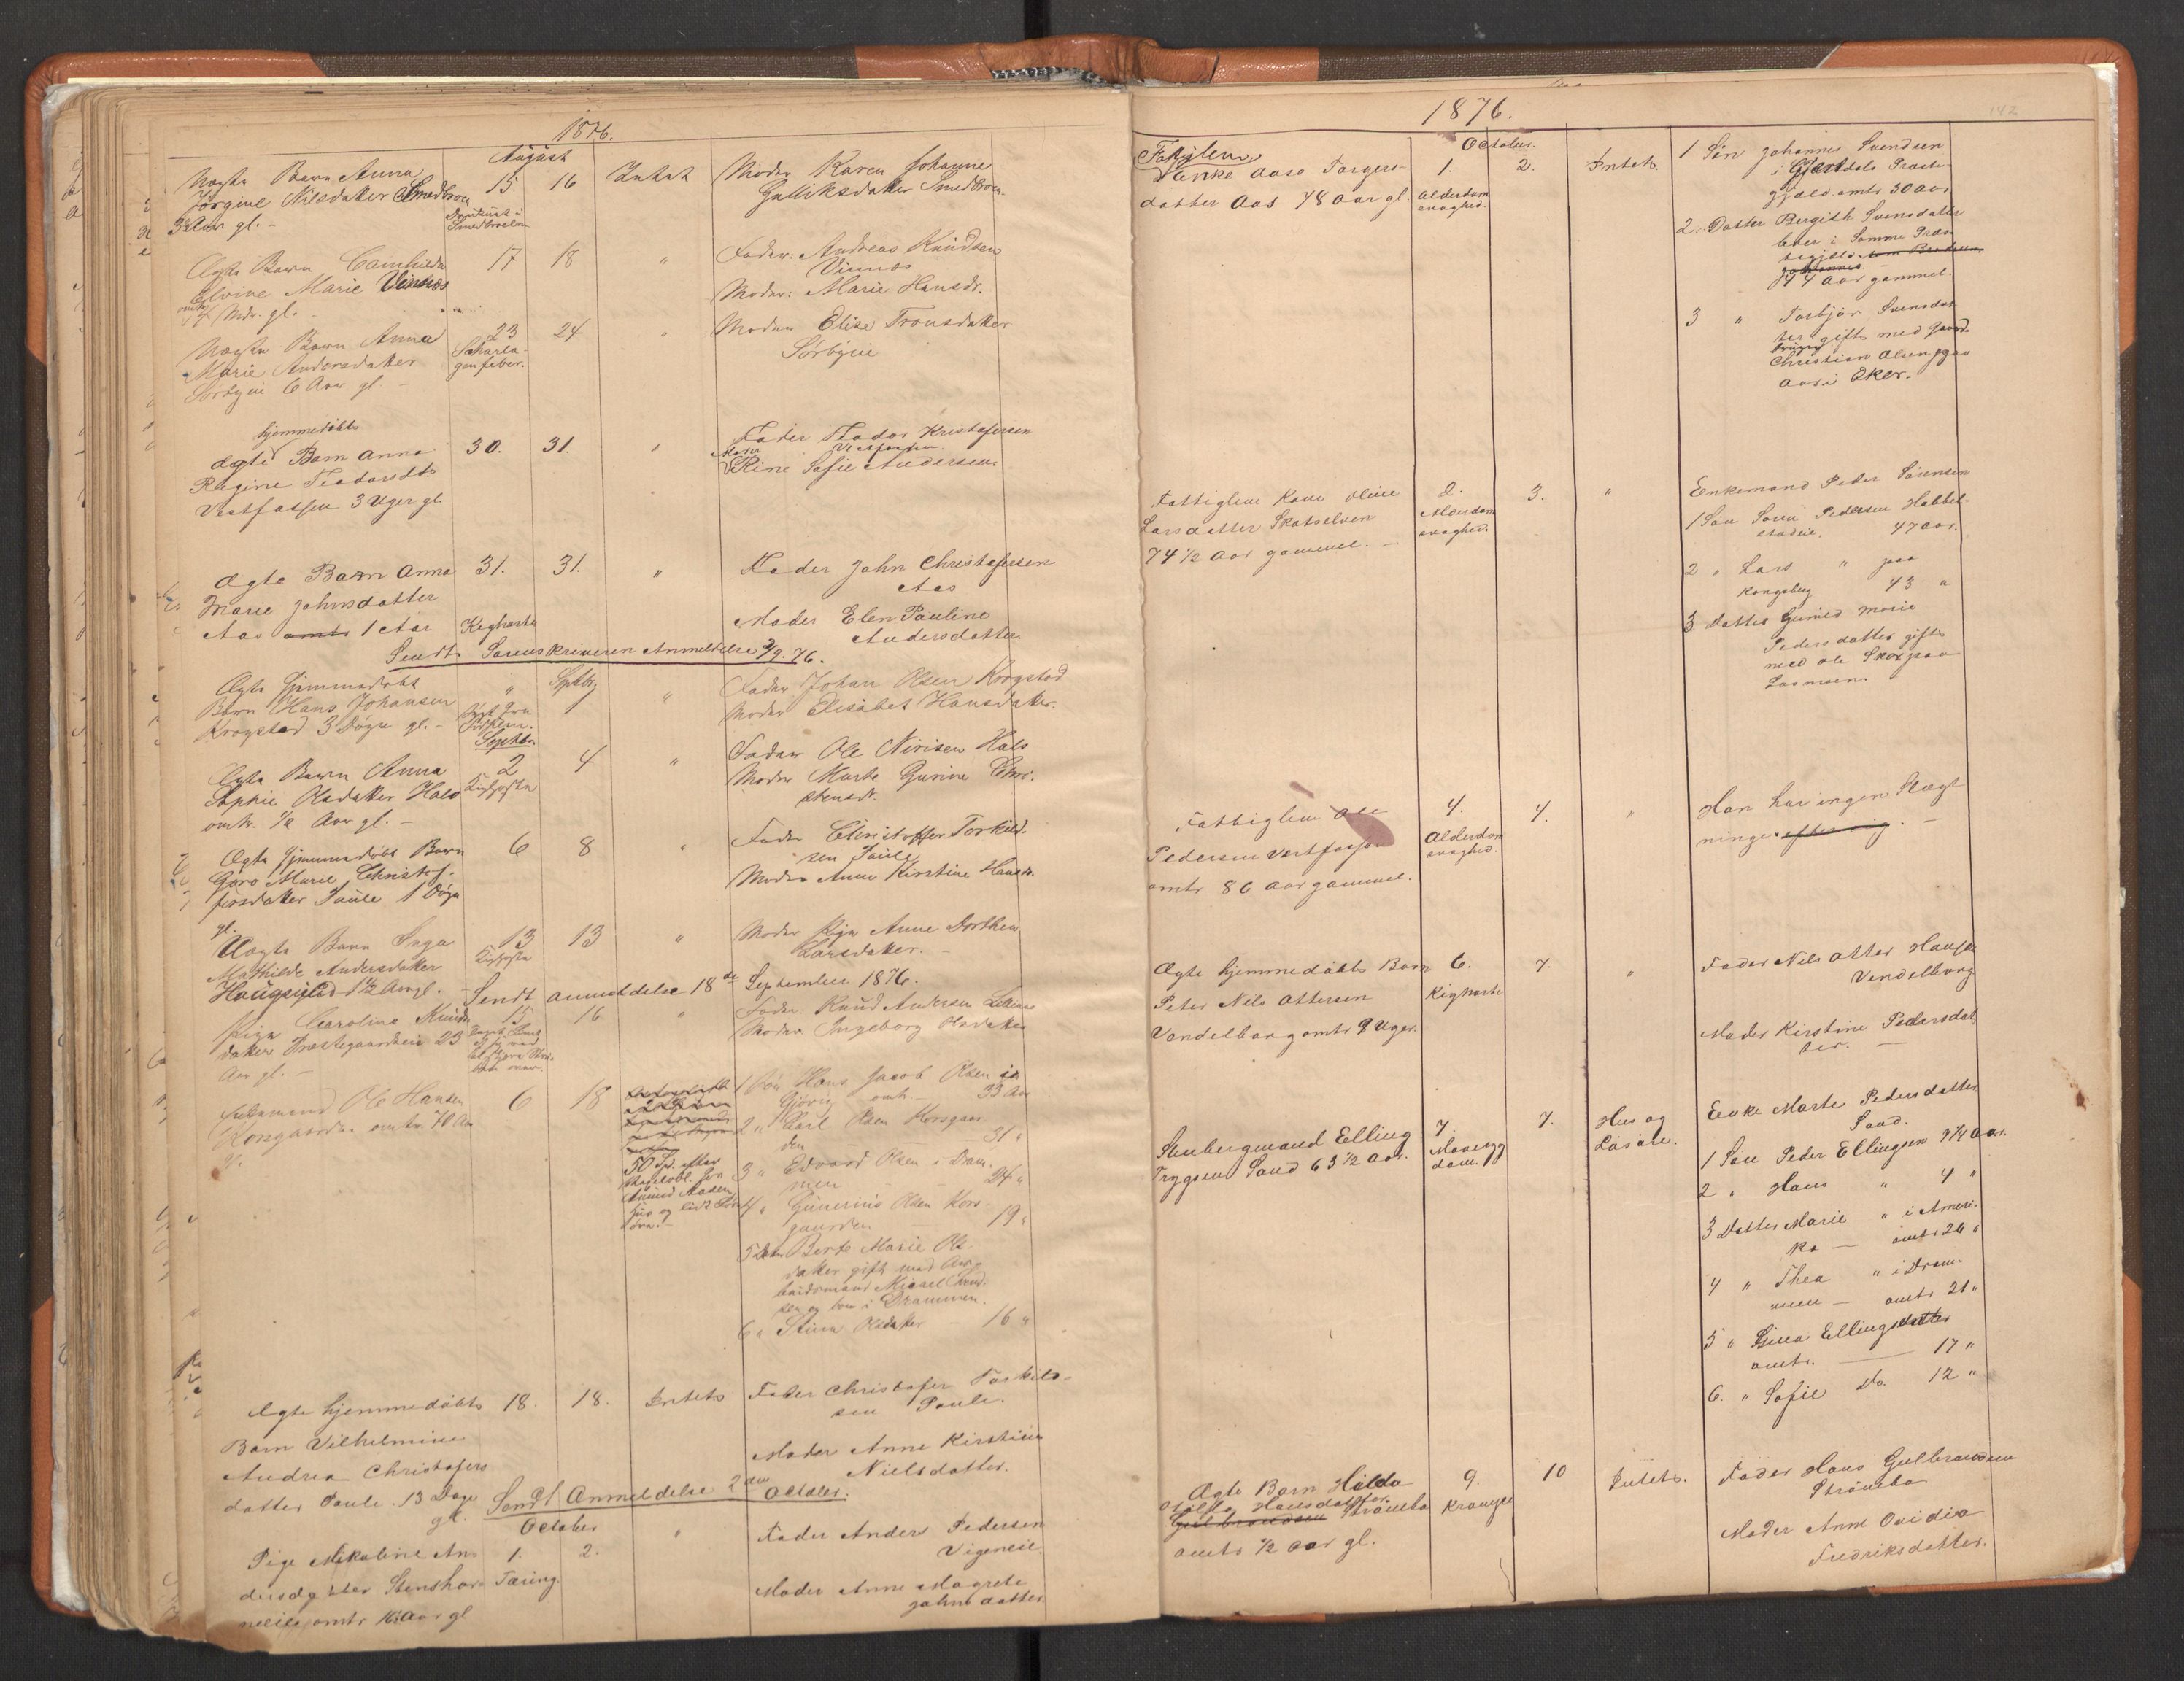 1876.
August
Uægte Barn Anna
Jorgine Nilsdatter Smedbroen
3 Aar gl. -
15
16
Intet
Moder Karen Johanne
Gulliksdatter Smedbroen
Ægte Barn Camhilda
Elvine Marie Vinnes
Mdr. gl. -
17
18
"
Fader: Andreas Knudsen
Vinnes
Moder: Marie Hansdr.
Uægte Barn Anna
Marie Andersdatter
Sørbyeie 6 Aar gl. -
23
Skarla-
gensfeber.
24
"
Moder Elise Tronsdatter
Sørbyeie
hjemmedøbt
Ægte Barn Anna
Ragine Teodorsdtr
Vestfossen 3 Uger gl
30.
31.
"
Fader Teodor Kristofersen
Vestfossen
Moder
Rine Sofie Andersen
Ægte Barn Anna
Marie Johnsdatter
Aas omtr 1 Aar
31.
Kighoste
31.
"
Fader John Christofersen
Aas
Moder Elen Pauline
Andersdatter
Sendt Sorenskriveren Anmeldelse 2/9. 76.
Ægte hjemmedøbt
Barn Hans Johansen
Krogstad 3 Døgn gl. -
"
Septbr
"
Fader Johan Olsen Krogstad
Moder Elisabet Hansdatter.
Septbr.
Ægte Barn Anna
Sophie Olsdatter Hals
omtr. 1/2 Aar gl. -
2
Kighoste
4
"
Fader Ole Nirisen Hals
Moder Marte Gurine Chri-
stensdr.
Ægte hjemmedøbt Barn
Goro Marie Christof-
fersdatter Paule 1 Døgn
gl.
6
8
"
Fader Christoffer Torkild-
sen Paule
Moder Anne Kirstine Hansdr.
Uægte Barn Inga
Mathilde Andersdatter
Hougsueied 1 1/2 Aar gl. -
13
Kighoste
13
"
Moder Pige Anne Dorthea
Larsdatter. -
Sendt anmeldelse 18de September 1876.
Pige Caroline Knuds-
datter Præstegaardseie 23
Aar gl. -
15
16
"
Fader Knud Andersen
Moder Ingeborg Olsdatter
Enkemand Ole Hansen
Korsgaarden omtr. 70 Aar
gl.
6
18
50 Spd. efter
1 Søn Hans Jacob Olsen i
Gjøvig omtr - 33 Aar
2 " Karl Olsen Korsgaar-
den - 31 "
3 " Edvard Olsen i Dram-
men - 24 "
4 " Gunerius Olsen Kors-
gaarden - 19 "
5 Dattr Berte Marie Ols-
datter gift med Ar-
beidsmand Micael Knud-
sen og bor i Drammen.
6 " Stina Olsdatter - 16 "
Ægte hjemmedøbt
Barn Vilhelmine
Andrea Christofers
datter Paule. 13 Dage
gl.
18.
18.
Intet
Fader Christofer Torkils-
sen Paule.
Moder Anne Kirstine
Nielsdatter.
Sendt Anmeldelse 2den October.
October
Pige Mikaline An-
dersdatter Stenshor-
neie omtr 16 Aar gl
1.
Tæring.
2.
"
Fader Anders Pedersen
Vigeneie.
Moder Anne Magrete
Johnsdatter.
1876.
142
October.
Fatiglem
Enke Aase Torgers-
datter Aas 78 Aar gl.
1.
Alderdom
svaghed.
2.
Intet.
1 Søn Johannes Svendsen
i Hjertdals Præste
gjæld omtr 50 Aar.
2. Datter Bergith Svensdatter
boer i Samme Præs-
tegjæld som Broderen
Johannes.
44 Aar gammel.
3 " Torbjør Svensdat-
ter gift med gaard-
bruger
Christian Olsen paa
Aas i Eker.
Fattiglem Kone Oline
Larsdatter Skotselven
74 1/2 Aar gammel. -
2.
Alderdom
svaghed.
3.
"
Enkemand Peder Sørensen
1 Søn Søren Pedersen Habbel-
stadeie. 47 Aar.
2 " Lars " paa
Kongsberg 43 "
3 Datter Gunild Marie
Pedersdatter gift
med Ole Skox paa
Laanum.
Fattiglem Ole
Pedersen Vestfossen
omtr 80 Aar gammel.
4.
Alderdom
svaghed.
4.
"
Han har ingen Slægt
ninge efter sig. -
Ægte hjemmedøbt Barn
Peter Nels Ottersen
Vendelborg omtr 9 Uger.
6.
Kighoste
7.
"
Fader Nels Otter Hansen
Vendelborg
Moder Kirstine Pedersdat-
ter. -
Stubergmand Elling
Trygsen Sand 63 1/2 Aar.
7.
Mavesyg
dom.
7.
Hus og
Løsøre.
Enke Marte Pedersdatter
Sand.
1 Søn Peder Ellingsen 37 1/4 Aar.
2 " Hans " 4 "
3 Datter Marie " i Ameri-
ka - omtr 26 "
4 " Thea " i Dram-
men - omtr 21 "
5 " Lina Ellingsdatter
omtr. - 17 "
6. " Sofie Do. 12 "
Ægte Barn Hilda
Hansdatter
Gulbrandsen Strømbo
omtr 1/2 Aar gl.
9.
Krampe
10
Intet.
Fader Hans Gulbrandsen
Strømbo
Moder Anne Ovidia
Fredriksdatter.